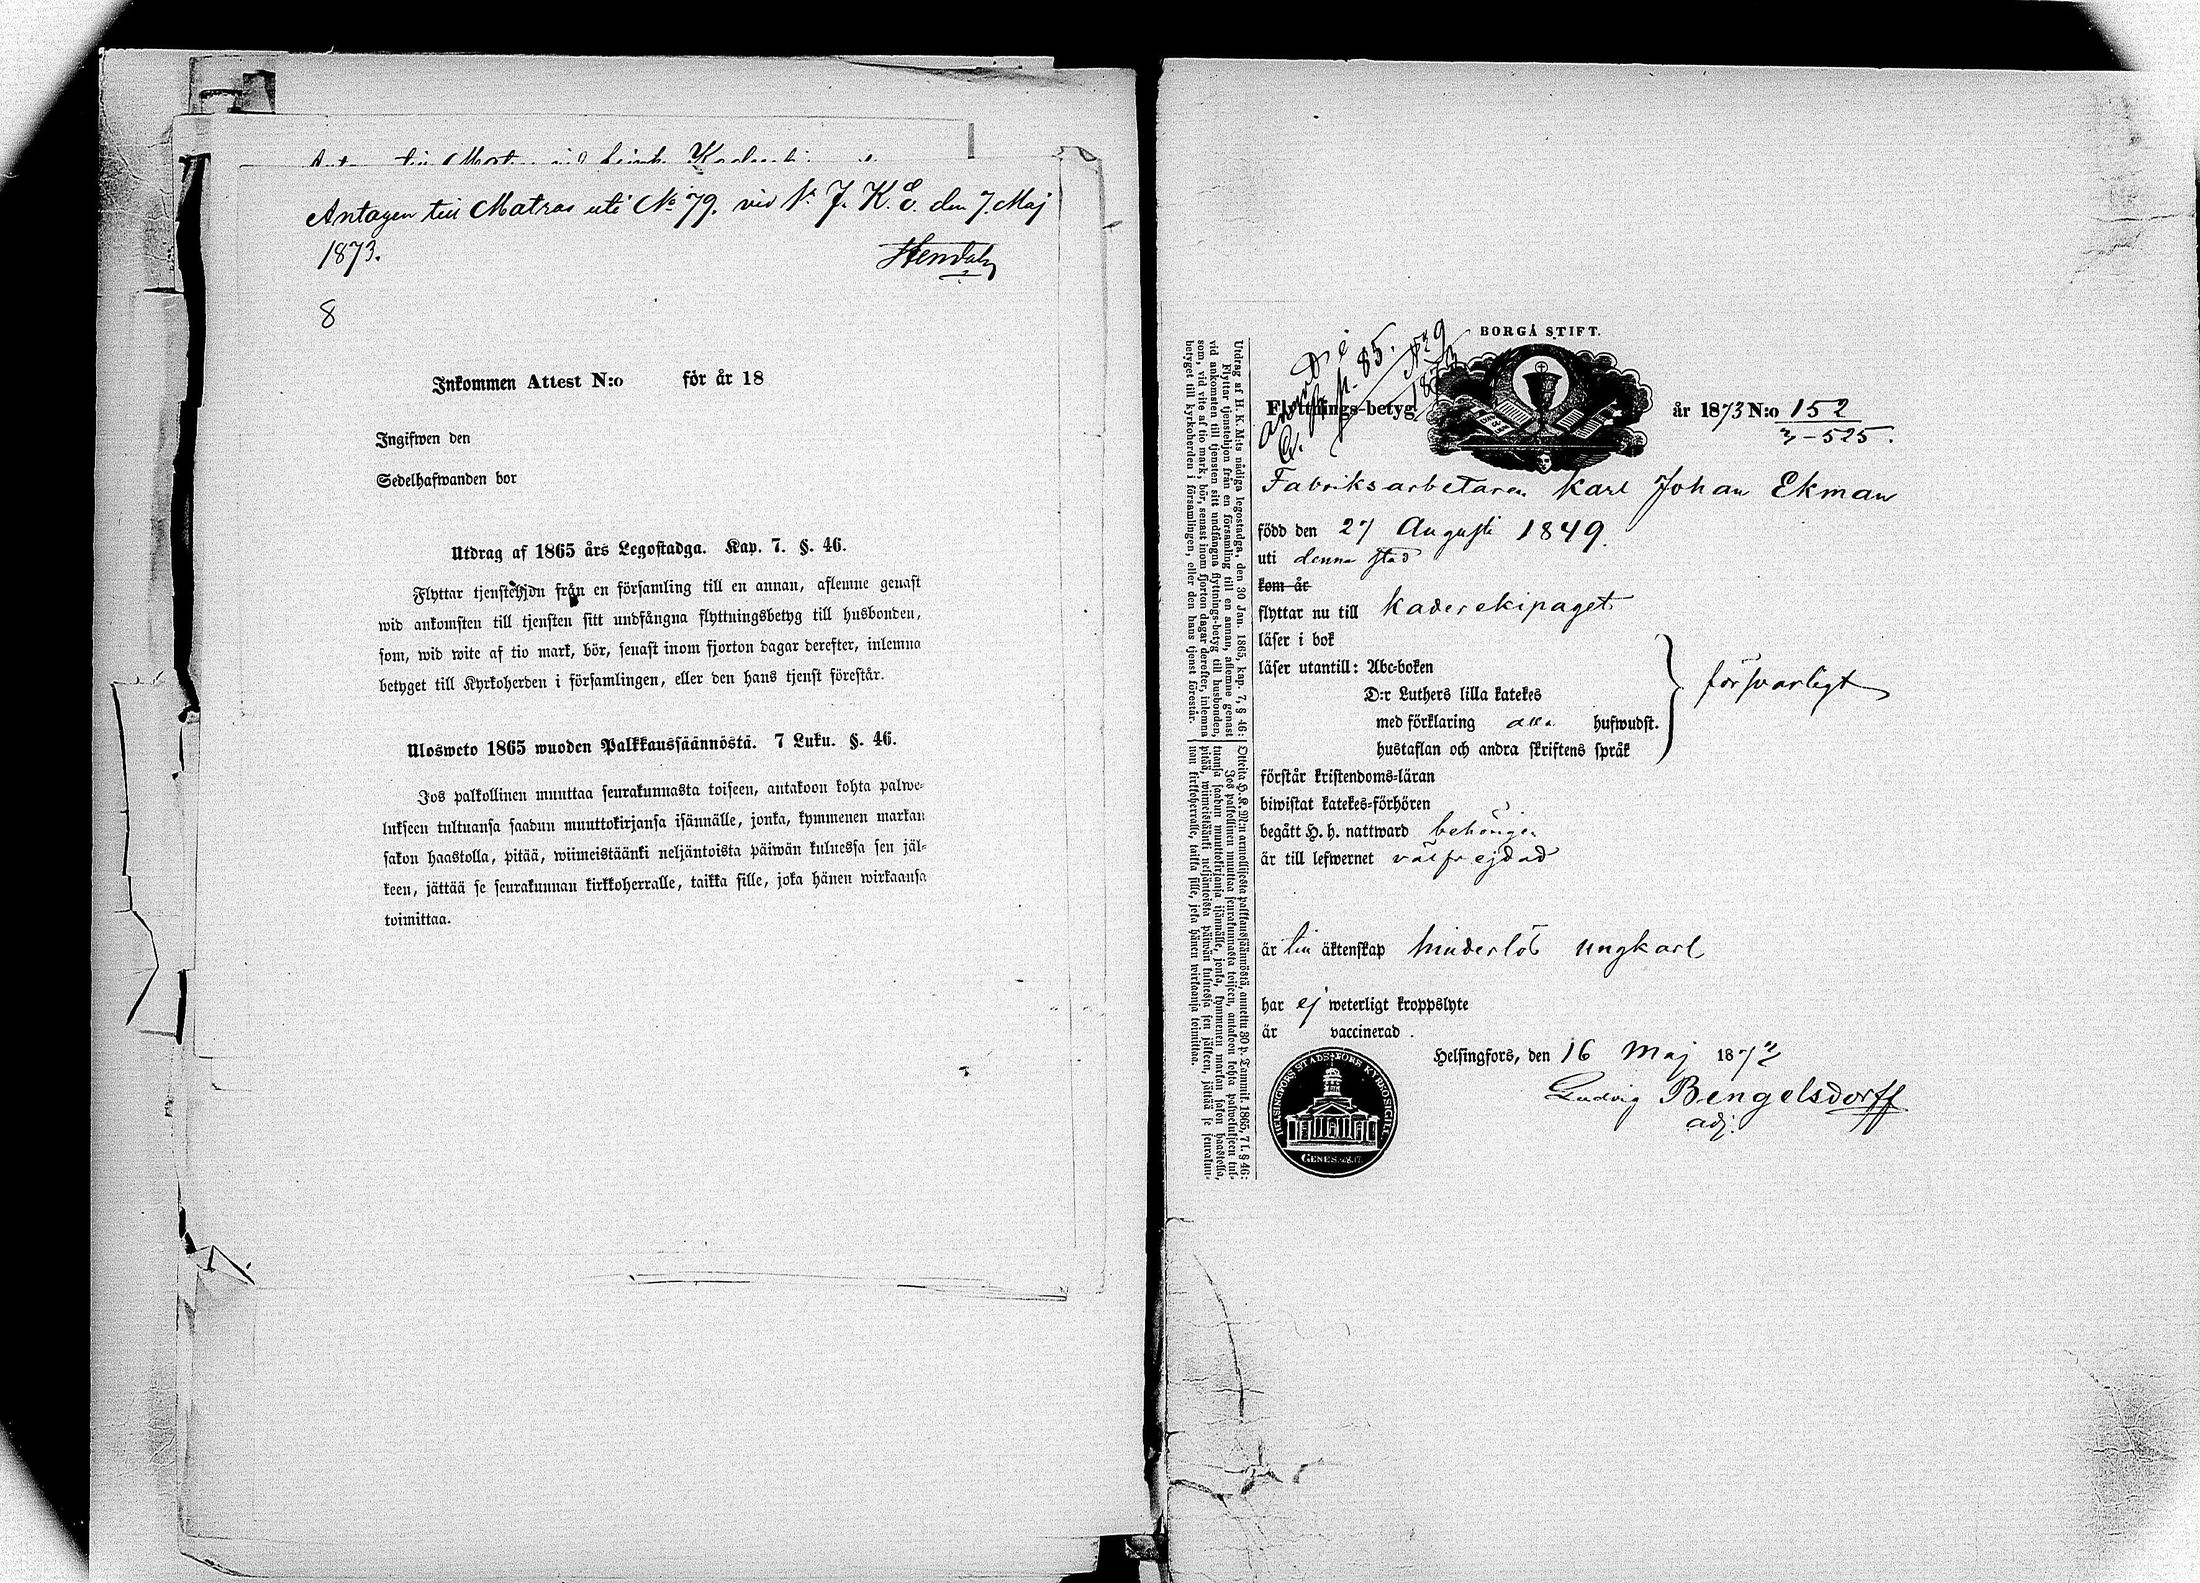 Antagen till Matros uti No 79. vid 1. F. K. E. den 7. Maj
1873.
8
Inkommen Attest N:o för år 18
Ingifwen den
Sedelhafwanden bor
Utdrag af 1865 års Legostadga. Kap. 7. §. 46.
Flyttar tjenstehjon från en församling till en annan, aflemne genast
wid ankomsten till tjensten sitt undfångna flyttningsbetyg till husbonden,
som, wid wite af tio mark, bör, senast inom fjorton dagar derefter, inlemna
betyget till Kyrkoherden i församlingen, eller den hans tjenst förestår.
Ulosweto 1865 wuoden Palkkaussäännöstä. 7 Luku. §. 46.
Jos palkollinen muuttaa seurakunnasta toiseen, antakoon kohta palwe-
lukseen tultuansa saadun muuttokirjansa isännälle, jonka, kymmenen markan
sakon haastolla, pitää, wiimeistäänki neljäntoista päiwän kuluessa sen jäl-
keen, jättää se seurakunnan kirkkoherralle, taikka sille, joka hänen wirkaansa
toimittaa.
BORGÅ STIFT.
Flyttnings-betyg år 1873 N:o 152
3-525.
Fabriksarbetaren Karl Johan Ekman
född den 27 Augusti 1849.
uti denna stad
kom år
flyttar nu till Kaderekipaget
läser i bok
läser utantill: Abc-boken
D:r Luthers lilla katekes
med förklaring alla hufwudst.
hustaflan och andra skriftens språk
försvarligt
förstår kristendoms-läran
biwistat katekes-förhören
begått H. h. nattward behörigen
är till lefwernet välfrejdad
är till äktenskap hinderlös ungkarl
har ej weterligt kroppslyte
är vaccinerad.
Helsingfors, den 16 Maj 1873
Ludvig Bengelsdorff
adj.
HELSINGFORS STADS-FÖRS KYRKOSIGILL
GENES. 28.17.
Utdrag af H. K. M:ts nådiga legostadga, den 30 Jan. 1865, kap. 7, § 46:
Flyttar tjenstehjon från en församling till en annan, aflemne genast
vid ankomsten till tjensten sitt undfångna flyttnings-betyg till husbonden,
som, vid vite af tio mark, bör, senast inom fjorton dagar derefter, inlemna
betyget till kyrkoherden i församlingen, eller den hans tjenst förestår.
Otteita H. K. M:n armollisesta palkkaussäännöstä, annettu 30 p. Tammik. 1865, 7 l. § 46:
Jos palkollinen muuttaa seurakunnasta toiseen, antakoon kohta palwelukseen tul-
tuansa saadun muuttokirjansa isännälle, jonka, kymmenen markan sakon haastolla,
pitää, wiimeistäänki neljäntoista päiwän kuluessa sen jälkeen, jättää se seurakun-
nan kirkkoherralle, taikka sille, joka hänen wirkaansa toimittaa.